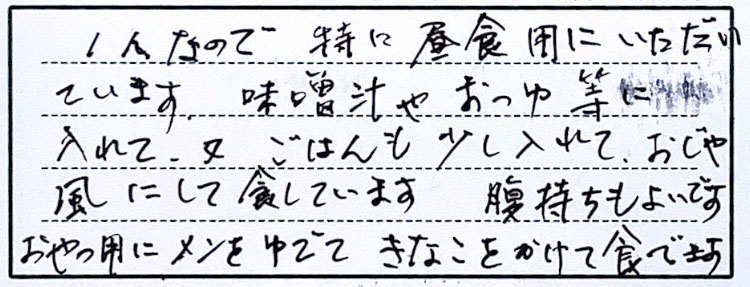 1人なので 特に昼食用にいただい
ています。味噌汁やおつゆ等に
入れて、又ごはんも少し入れて、おじや
風にして食しています 腹持ちもよいです
おやつ用にメンをゆでて きなこをかけて食べてます